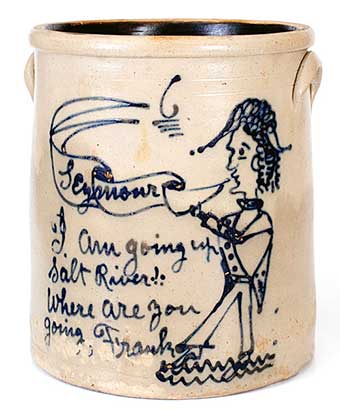 6
Seymour
"I am going up
Salt River!!
Where are you
going, Frank